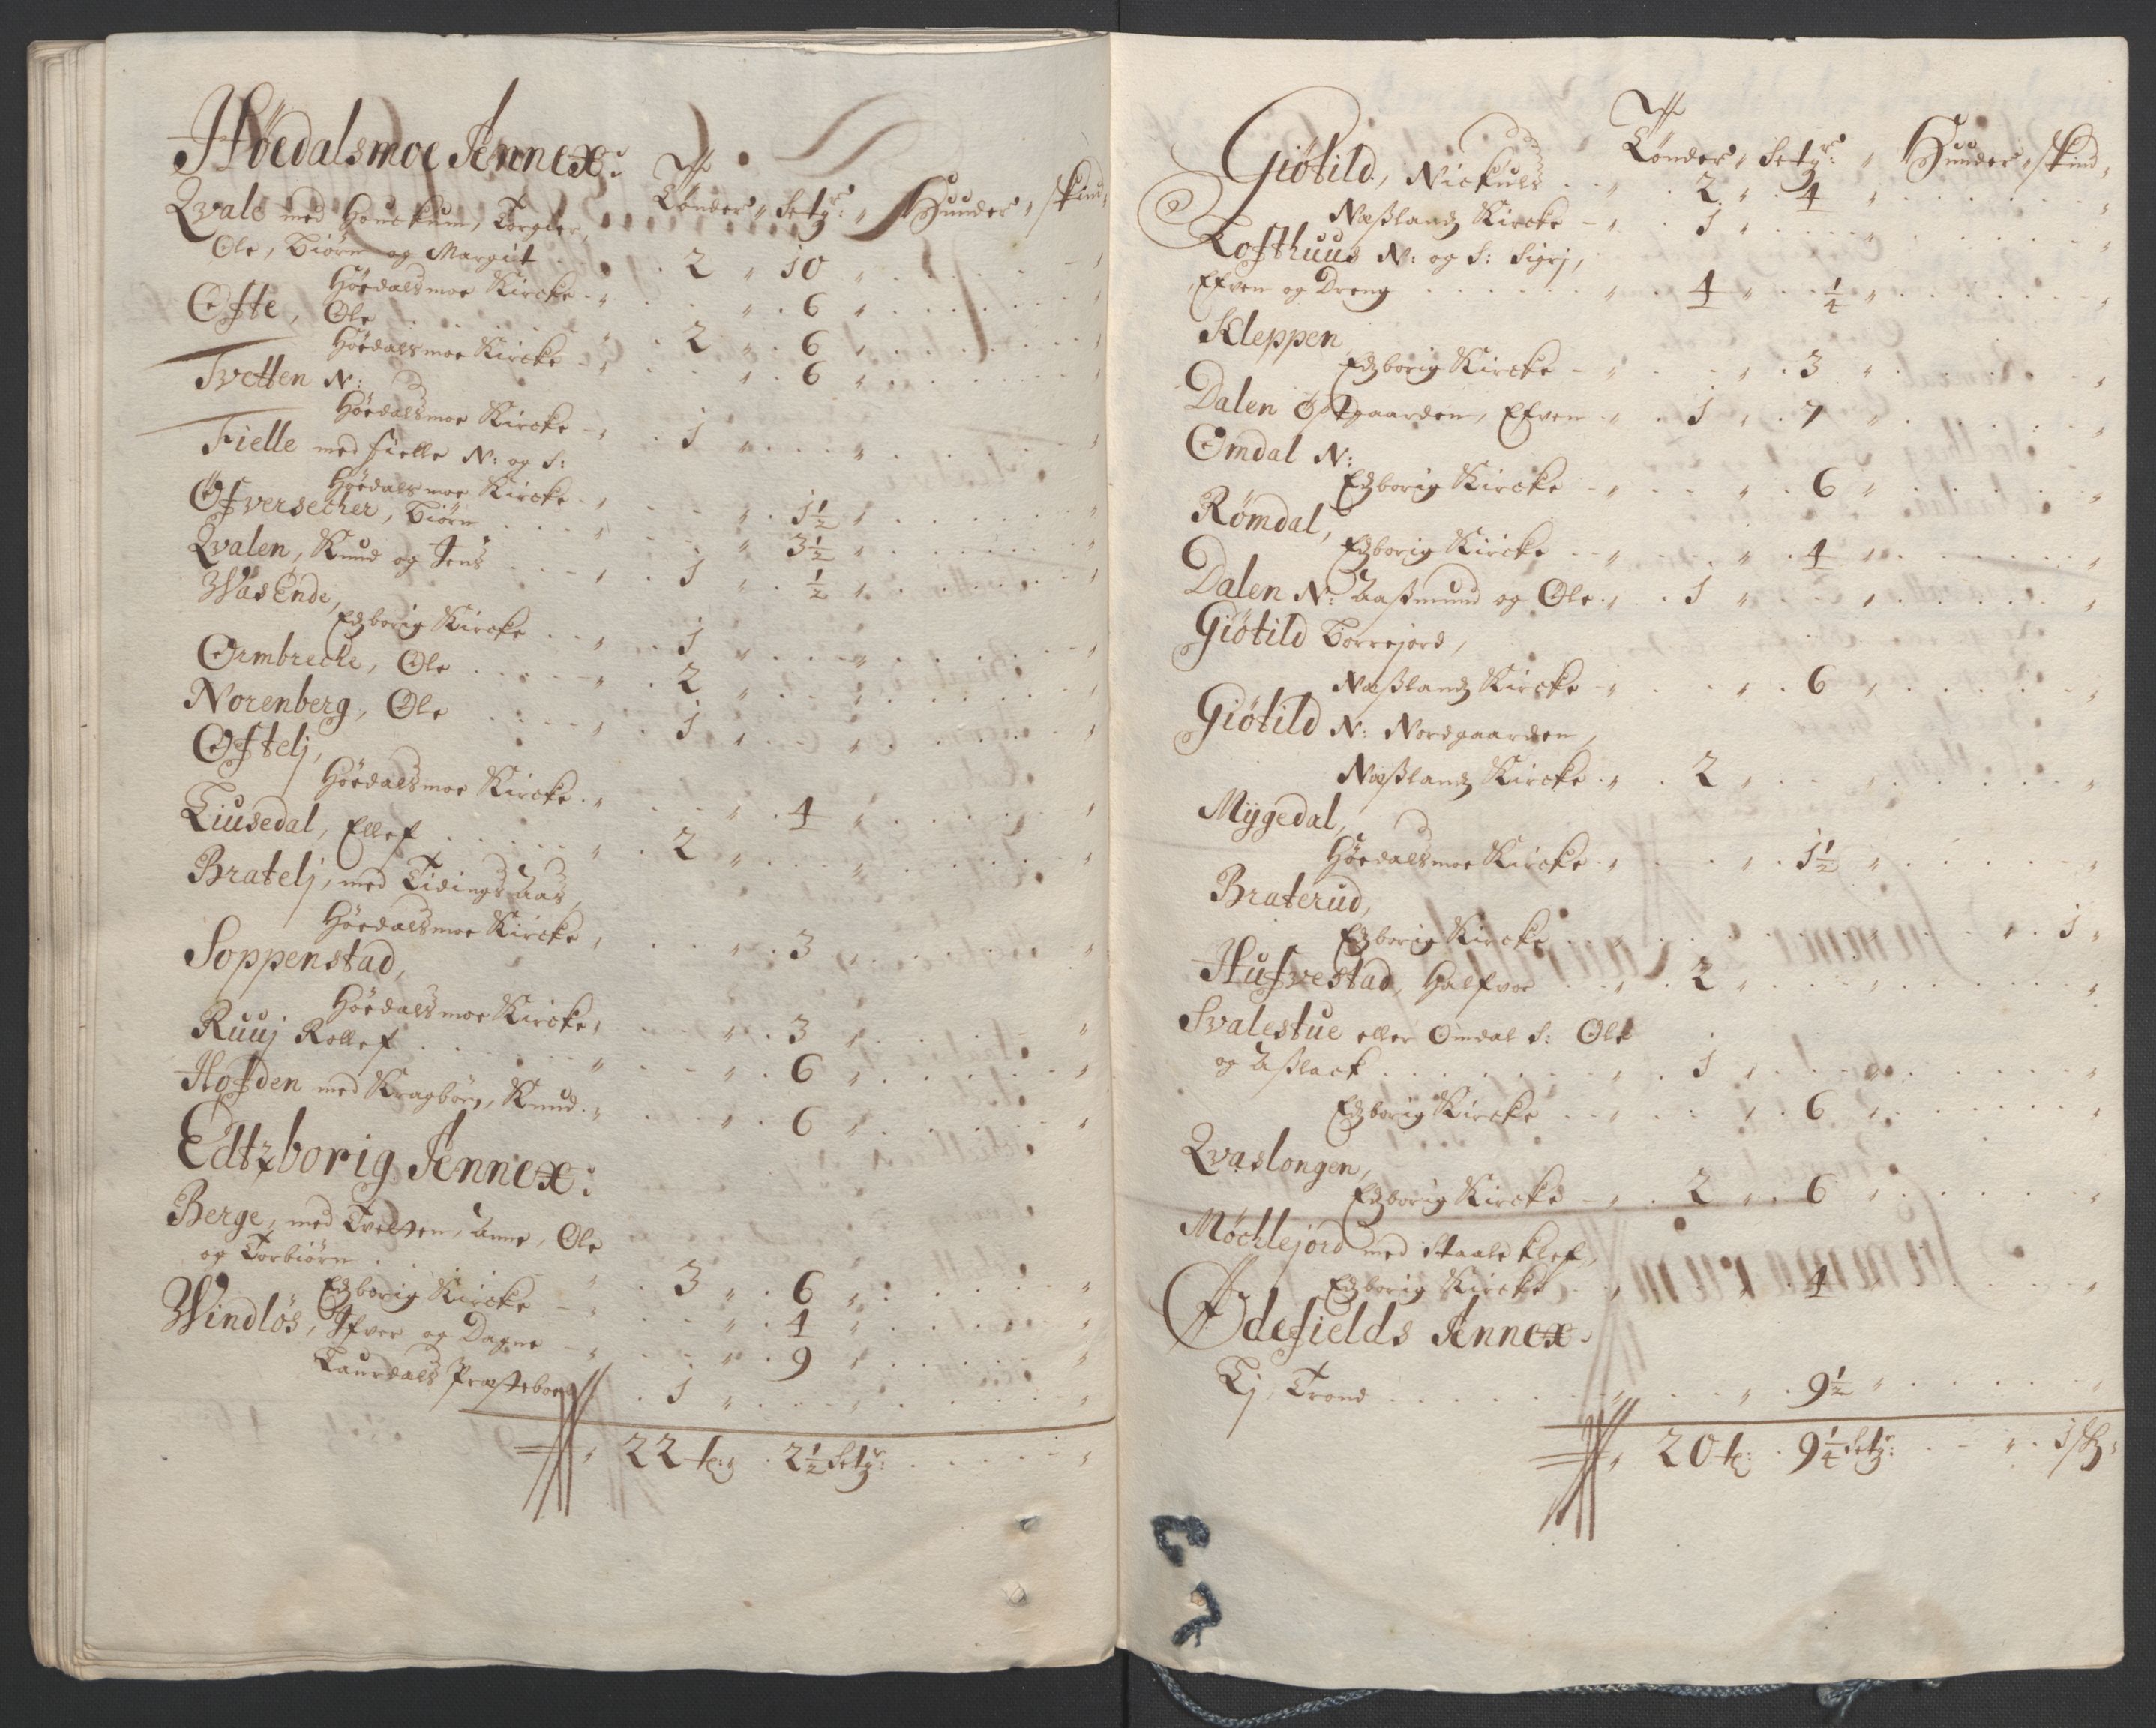 Høedalsmoe Annex:
Tønder, Setgr: Hunder, skind,
Qvale med Houckum, Torgier,
Ole, Biørn og Margit . . 2 „ 10 „
Høedalsmoe Kircke - „ „ 6 „
Ofte, Ole . . . . 2 „ 6 „
Høedalsmoe Kircke - „ „ 6 „
Tvetten N:
Høedalsmoe Kircke - „ 1 „ „
Fielle med fielle N: og S:
Høedalsmoe Kircke - „ „ 1½ „
Ofversecher, Biørn . . . „ „ 3½ „
Qvalen, Knud og Jens . . - „ 1 „ ½ „
WåsEnde,
Edzborig Kircke . . „ 1 „ „
Ormbreche, Ole . . . . „ 2 „ „
Norenberg, Ole . . . . „ 1 „ „
Oftelj,
Høedalsmoe Kircke . „ „ 4 „
Liusedal, Ellef . . . . „ 2 „ „
Bratelj, med Tidings Aas,
Høedalsmoe Kircke „ „ 3 „
Soppenstad,
Høedalsmoe Kircke „ „ 3 „
Ruuj Rollef . . . . „ „ 6 „
Hofden med Kragborg, Knud . „ „ 6 „
Edtzborig Annex:
Berge, med Tvetten, Anne, Ole
og Torbiørn . . . . „ 3 „ 6 „
Edzborig Kircke - „ „ 4 „
Windløs, Ifver og Dagne - „ „ 9 „
Laurdals Præstebord „ 1 „ „
„ 22 t: 2½ Setgr:
Tønder, Setgr: „ Hunder, skind,
Giøtild, Nickuls . . „ 2 „ 4 „
Næsslandz Kircke - „ 1 „ „
Lofthuus N: og S: Sigrj,
Efven og Dreng . . . . „ 4 „ ¼ „
Kleppen
Edzborig Kircke - „ „ 3 „
Dalen Østgaarden, Efven . „ 1 „ 7 „
Omdal N:
Edzborig Kircke - „ „ 6 „
Rømdal,
Edzborig Kircke - „ „ 4 „
Dalen N: Aassmund og Ole . „ 1 „ „
Giøtild Borrejord,
Næsslandz Kircke - „ „ 6 „
Giøtild N: Nordgaarden,
Næsslandz Kircke . „ 2 „ „
Mÿgedal,
Høedalsmoe Kircke . „ „ 1½ „
Braterud,
Edzborig Kircke . . . . „ 1 „
Hufvestad, Halfvor . . „ 2 „ „
Svalestue eller Omdal S: Ole
og Asslack . . . . „ 1 „ „
Edzborig Kircke - „ „ 6 „
Qvaslongen,
Edzborig Kircke - „ 2 „ 6 „
Møchlejord med Staale klef,
Edzborig Kircke . . „ 4 „
Ødefields Annex.
Lj, Trond . . . . „ „ 9½ „
„ 20 t: 9¼ Setgr: . . - „ . 1 sk: